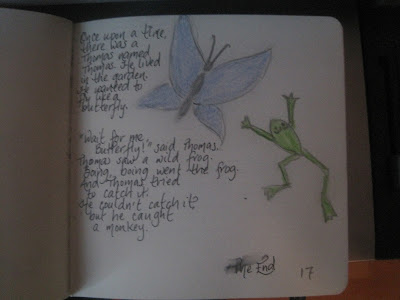 Once upon a time,
there was a
Thomas named
Thomas. He lived
in the garden.
He wanted to
fly like a
butterfly.
"Wait for me,
butterfly!" said Thomas.
Thomas saw a wild frog.
Boing, boing went the frog.
And Thomas tried
to catch it.
He couldn't catch it
but he caught
a monkey.
The End
17